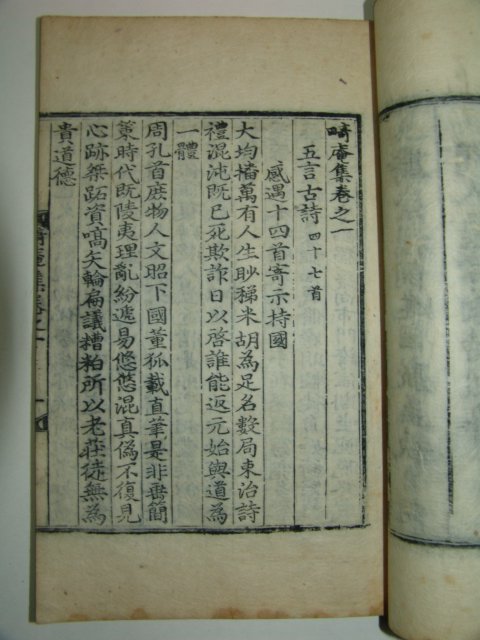 畸庵集卷之一
五言古詩 四十七首
感遇十四首寄示持國
大均播萬有人生眇稊米胡為足名數局束治詩
禮混沌既已死欺詐日以啓誰能返元始與道為
一體
周孔首庶物人文昭下國董狐載直筆是非垂簡
策時代既陵夷理亂紛遞易悠悠混真僞不復見
心跡桀跖資嚆矢輪扁議糟粕所以老莊徒無為
貴道德